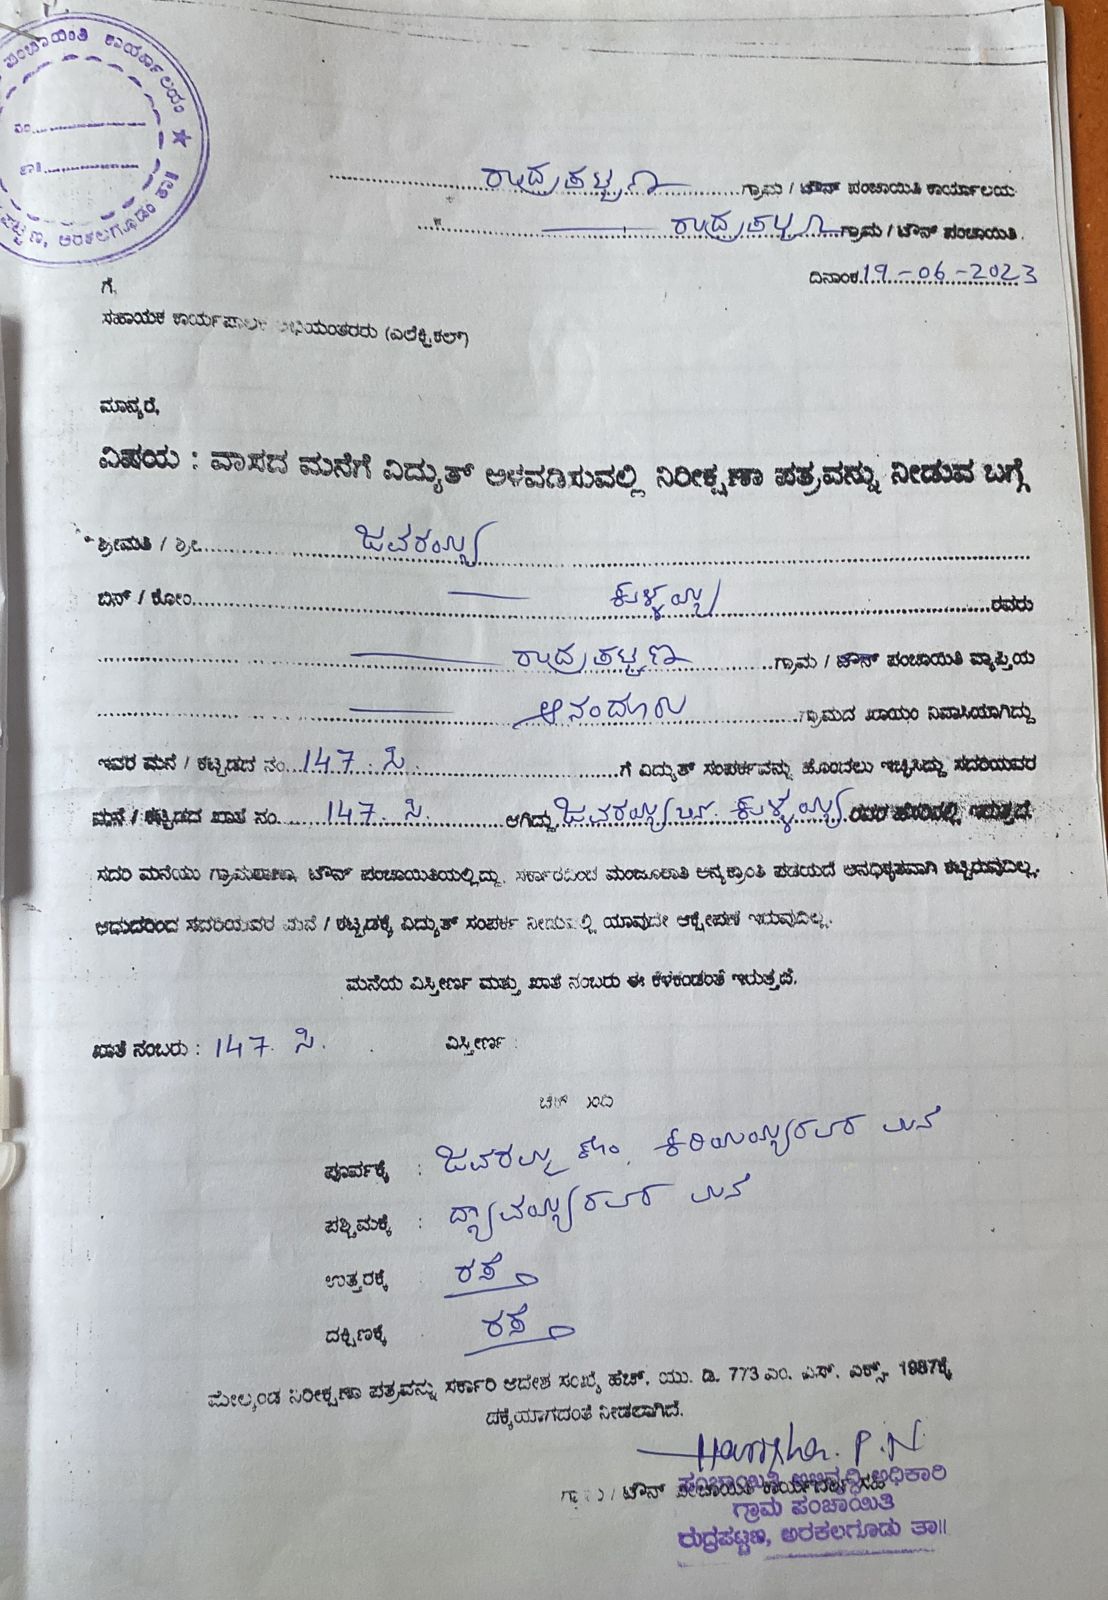 ಪಂಚಾಯಿತಿ ಕಾರ್ಯಾಲಯ
ಪಟ್ಟಣ, ಅರಕಲಗೂಡು ತಾ॥
ರುದ್ರಪಟ್ಟಣ ಗ್ರಾಮ / ಟೌನ್ ಪಂಚಾಯಿತಿ ಕಾರ್ಯಾಲಯ
ರುದ್ರಪಟ್ಟಣ ಗ್ರಾಮ / ಟೌನ್ ಪಂಚಾಯಿತಿ.
ದಿನಾಂಕ 19-06-2023
ಗೆ,
ಸಹಾಯಕ ಕಾರ್ಯಪಾಲಕ ಅಭಿಯಂತರರು (ಎಲೆಕ್ಟ್ರಿಕಲ್)
ಮಾನ್ಯರೆ,
ವಿಷಯ : ವಾಸದ ಮನೆಗೆ ವಿದ್ಯುತ್ ಅಳವಡಿಸುವಲ್ಲಿ ನಿರೀಕ್ಷಣಾ ಪತ್ರವನ್ನು ನೀಡುವ ಬಗ್ಗೆ
ಶ್ರೀಮತಿ / ಶ್ರೀ ಜವರಯ್ಯ
ಬಿನ್ / ಕೋಂ ಕುಳ್ಳಯ್ಯ ರವರು
ರುದ್ರಪಟ್ಟಣ ಗ್ರಾಮ / ಟೌನ್ ಪಂಚಾಯಿತಿ ವ್ಯಾಪ್ತಿಯ
ಗ್ರಾಮದ ಖಾಯಂ ನಿವಾಸಿಯಾಗಿದ್ದು
ಇವರ ಮನೆ / ಕಟ್ಟಡದ ನಂ. 147. ಸಿ. ಗೆ ವಿದ್ಯುತ್ ಸಂಪರ್ಕವನ್ನು ಹೊಂದಲು ಇಚ್ಛಿಸಿದ್ದು ಸದರಿಯವರ
ಮನೆ / ಕಟ್ಟಡದ ಖಾತೆ ನಂ. 147. ಸಿ. ಆಗಿದ್ದು ಜವರಯ್ಯ ಬಿನ್. ಕುಳ್ಳಯ್ಯ ರವರ ಹೆಸರಿನಲ್ಲಿ ಇರುತ್ತದೆ.
ಸದರಿ ಮನೆಯು ಗ್ರಾಮಠಾಣಾ, ಟೌನ್ ಪಂಚಾಯಿತಿಯಲ್ಲಿದ್ದು, ಸರ್ಕಾರದಿಂದ ಮಂಜೂರಾತಿ ಅನ್ಯಕ್ರಾಂತಿ ಪಡೆಯದೆ ಅನಧಿಕೃತವಾಗಿ ಕಟ್ಟಿರುವುದಿಲ್ಲ.
ಆದುದರಿಂದ ಸದರಿಯವರ ಮನೆ / ಕಟ್ಟಡಕ್ಕೆ ವಿದ್ಯುತ್ ಸಂಪರ್ಕ ನೀಡುವಲ್ಲಿ ಯಾವುದೇ ಆಕ್ಷೇಪಣೆ ಇರುವುದಿಲ್ಲ.
ಮನೆಯ ವಿಸ್ತೀರ್ಣ ಮತ್ತು ಖಾತೆ ನಂಬರು ಈ ಕೆಳಕಂಡಂತೆ ಇರುತ್ತದೆ.
ಖಾತೆ ನಂಬರು : 147. ಸಿ. ವಿಸ್ತೀರ್ಣ :
ಚೆಕ್ ಬಂದಿ
ಪೂರ್ವಕ್ಕೆ : ಜವರಯ್ಯ ಕರಿಯಯ್ಯರವರ ಮನೆ
ಪಶ್ಚಿಮಕ್ಕೆ : ದ್ಯಾವಯ್ಯರವರ ಮನೆ
ಉತ್ತರಕ್ಕೆ : ರಸ್ತೆ
ದಕ್ಷಿಣಕ್ಕೆ : ರಸ್ತೆ
ಮೇಲ್ಕಂಡ ನಿರೀಕ್ಷಣಾ ಪತ್ರವನ್ನು ಸರ್ಕಾರಿ ಆದೇಶ ಸಂಖ್ಯೆ ಹೆಚ್. ಯು. ಡಿ. 773 ಎಂ. ಎಸ್. ಎಕ್ಸ್. 1987ಕ್ಕೆ
ಧಕ್ಕೆಯಾಗದಂತೆ ನೀಡಲಾಗಿದೆ.
ಗ್ರಾಮ / ಟೌನ್ ಪಂಚಾಯಿತಿ ಕಾರ್ಯದರ್ಶಿ ಸಹಿ
ಪಂಚಾಯಿತಿ ಅಭಿವೃದ್ಧಿ ಅಧಿಕಾರಿ
ಗ್ರಾಮ ಪಂಚಾಯಿತಿ
ರುದ್ರಪಟ್ಟಣ, ಅರಕಲಗೂಡು ತಾ॥